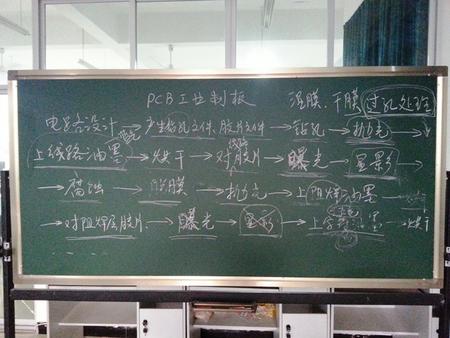 PCB工业制板 湿膜、干膜 过孔处理
电路设计 → 产生钻孔文件、胶片文件 → 钻孔 → 抛光 →
上线路油墨 → 烘干 → 对胶片 → 曝光 → 显影 →
→ 腐蚀 → 脱膜 → 抛光 → 上阻焊油墨 → 烘干
→ 对阻焊层胶片 → 曝光 → 显影 → 上字符油墨 → 烘干
. . . .